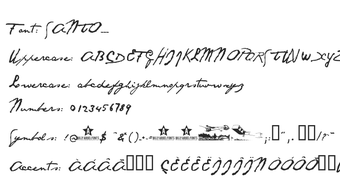 Font: SANTO_
Uppercase: ABCDEFGHIJKLMNOPQRSTUVWXYZ
Lowercase: abcdefghijklmnopqrstuvwxyz
Numbers: 0123456789
Symbols: !@ $ ¨&()
Accents: ÀÁÂÃ ÇÈÉÊËÌÍÎÏÑÒÓÔÕ